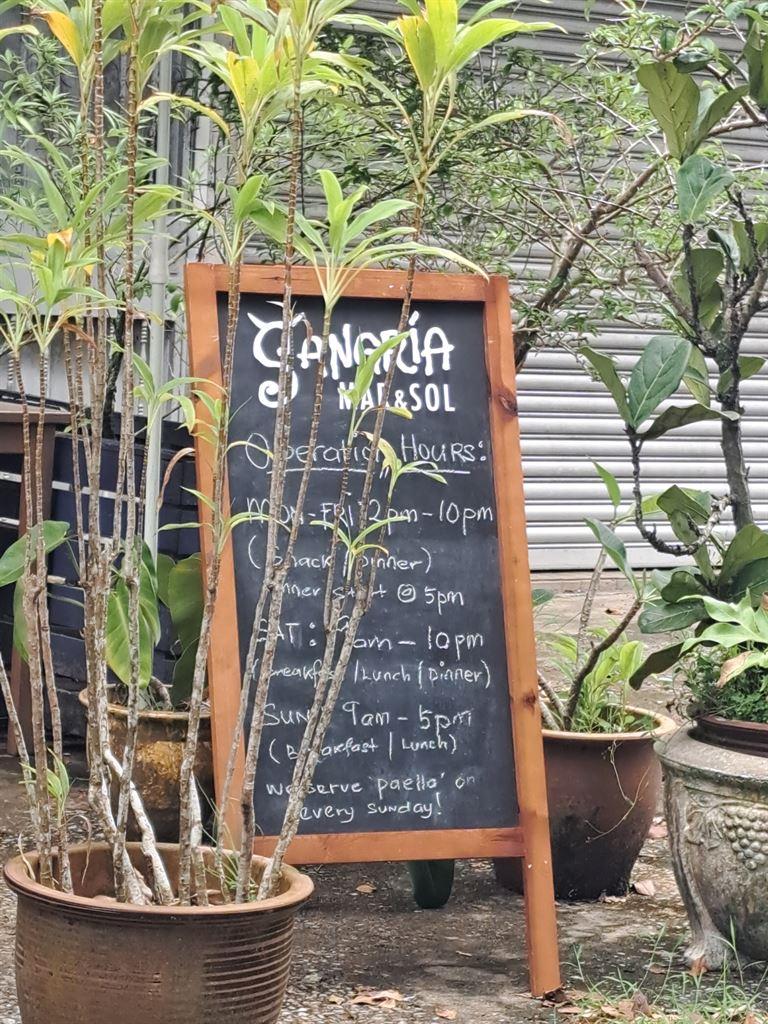 CANARÍA
MAR & SOL
Operation Hours:
MON - FRI 2pm - 10pm
(Snack / Dinner)
Dinner start @ 5pm
SAT : 9am - 10pm
(Breakfast / Lunch / Dinner)
SUN 9am - 5pm
(Breakfast / Lunch)
we serve 'paella' on
every sunday!